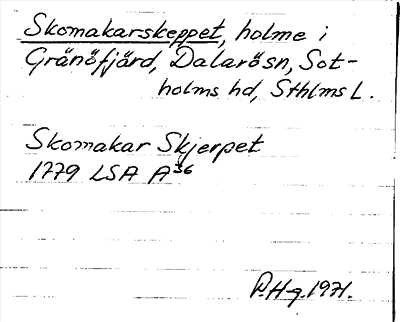 Skomakarskeppet, holme i
Gränöfjärd, Dalarösn, Sot-
holms hd, Sthlms L.
Skomakar Skjerpet
1779 LSA A36
P.H-g. 1971.